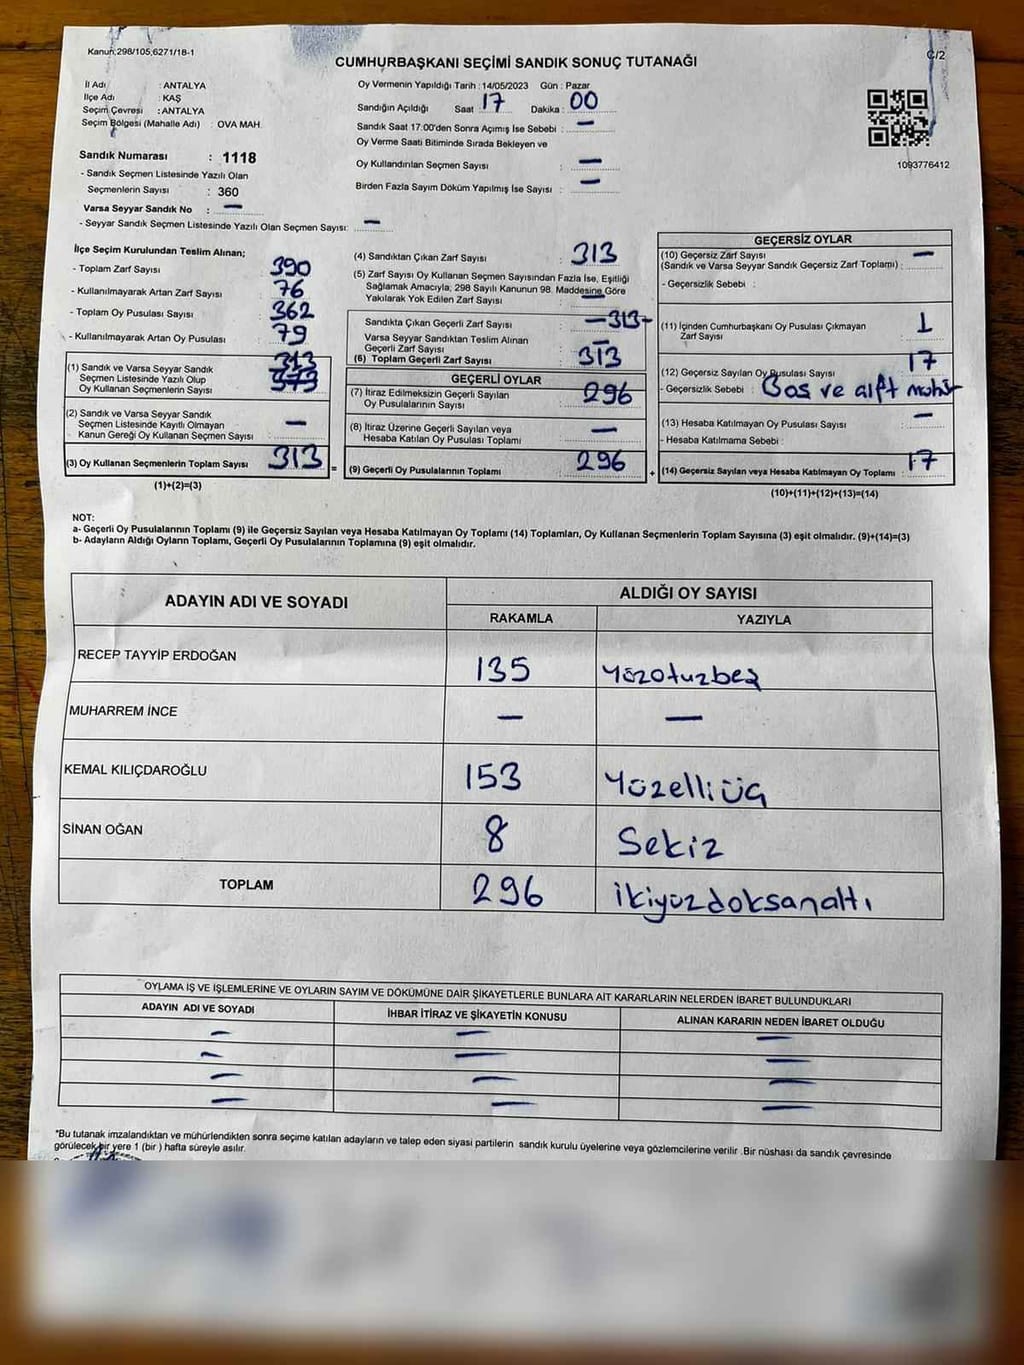 Kanun;298/105;6271/18-1
CUMHURBAŞKANI SEÇİMİ SANDIK SONUÇ TUTANAĞI
C/2
İl Adı : ANTALYA
İlçe Adı : KAŞ
Seçim Çevresi : ANTALYA
Seçim Bölgesi (Mahalle Adı) : OVA MAH.
Sandık Numarası : 1118
- Sandık Seçmen Listesinde Yazılı Olan
Seçmenlerin Sayısı : 360
Varsa Seyyar Sandık No : —
- Seyyar Sandık Seçmen Listesinde Yazılı Olan Seçmen Sayısı: —
Oy Vermenin Yapıldığı Tarih : 14/05/2023 Gün : Pazar
Sandığın Açıldığı Saat 17 Dakika : 00
Sandık Saat 17:00'den Sonra Açımış İse Sebebi : —
Oy Verme Saati Bitiminde Sırada Bekleyen ve
Oy Kullandırılan Seçmen Sayısı : —
Birden Fazla Sayım Döküm Yapılmış İse Sayısı : —
1093776412
İlçe Seçim Kurulundan Teslim Alınan;
- Toplam Zarf Sayısı 390
- Kullanılmayarak Artan Zarf Sayısı : 76
- Toplam Oy Pusulası Sayısı : 362
- Kullanılmayarak Artan Oy Pusulası : 79
(1) Sandık ve Varsa Seyyar Sandık 313
Seçmen Listesinde Yazılı Olup 373
Oy Kullanan Seçmenlerin Sayısı
(2) Sandık ve Varsa Seyyar Sandık
Seçmen Listesinde Kayıtlı Olmayan —
Kanun Gereği Oy Kullanan Seçmen Sayısı
(3) Oy Kullanan Seçmenlerin Toplam Sayısı 313 =
(1)+(2)=(3)
(4) Sandıktan Çıkan Zarf Sayısı : 313
(5) Zarf Sayısı Oy Kullanan Seçmen Sayısından Fazla İse, Eşitliği
Sağlamak Amacıyla, 298 Sayılı Kanunun 98. Maddesine Göre
Yakılarak Yok Edilen Zarf Sayısı —
Sandıkta Çıkan Geçerli Zarf Sayısı —313-
Varsa Seyyar Sandıktan Teslim Alınan
Geçerli Zarf Sayısı —
(6) Toplam Geçerli Zarf Sayısı 313
GEÇERLİ OYLAR
(7) İtiraz Edilmeksizin Geçerli Sayılan 296
Oy Pusulalarının Sayısı
(8) İtiraz Üzerine Geçerli Sayılan veya —
Hesaba Katılan Oy Pusulası Toplamı
(9) Geçerli Oy Pusulalarının Toplamı 296 +
GEÇERSİZ OYLAR
(10) Geçersiz Zarf Sayısı —
(Sandık ve Varsa Seyyar Sandık Geçersiz Zarf Toplamı) :
- Geçersizlik Sebebi :
(11) İçinden Cumhurbaşkanı Oy Pusulası Çıkmayan 1
Zarf Sayısı :
(12) Geçersiz Sayılan Oy Pusulası Sayısı 17
- Geçersizlik Sebebi : Bos ve çift mühür
(13) Hesaba Katılmayan Oy Pusulası Sayısı : —
- Hesaba Katılmama Sebebi :
(14) Geçersiz Sayılan veya Hesaba Katılmayan Oy Toplamı : 17
(10)+(11)+(12)+(13)=(14)
NOT:
a- Geçerli Oy Pusulalarının Toplamı (9) ile Geçersiz Sayılan veya Hesaba Katılmayan Oy Toplamı (14) Toplamları, Oy Kullanan Seçmenlerin Toplam Sayısına (3) eşit olmalıdır. (9)+(14)=(3)
b- Adayların Aldığı Oyların Toplamı, Geçerli Oy Pusulalarının Toplamına (9) eşit olmalıdır.
ADAYIN ADI VE SOYADI
ALDIĞI OY SAYISI
RAKAMLA YAZIYLA
RECEP TAYYİP ERDOĞAN 135 Yüzotuzbeş
MUHARREM İNCE — —
KEMAL KILIÇDAROĞLU 153 Yüzelliüç
SİNAN OĞAN 8 Sekiz
TOPLAM 296 ikiyüzdoksanaltı
OYLAMA İŞ VE İŞLEMLERİNE VE OYLARIN SAYIM VE DÖKÜMÜNE DAİR ŞİKAYETLERLE BUNLARA AİT KARARLARIN NELERDEN İBARET BULUNDUKLARI
ADAYIN ADI VE SOYADI İHBAR İTİRAZ VE ŞİKAYETİN KONUSU ALINAN KARARIN NEDEN İBARET OLDUĞU
— — —
— — —
— — —
— — —
*Bu tutanak imzalandıktan ve mühürlendikten sonra seçime katılan adayların ve talep eden siyasi partilerin sandık kurulu üyelerine veya gözlemcilerine verilir .Bir nüshası da sandık çevresinde
görülecek bir yere 1 (bir ) hafta süreyle asılır.